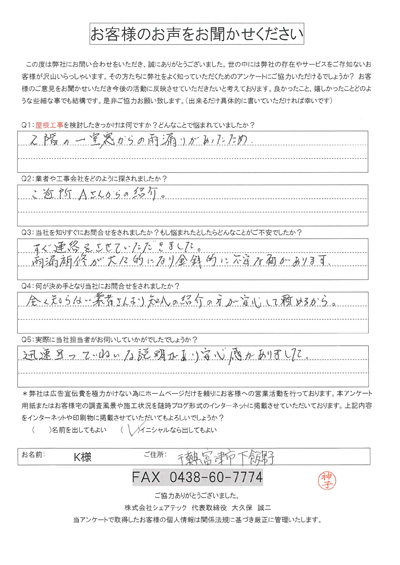 お客様のお声をお聞かせください
この度は弊社にお問い合わせをいただき、誠にありがとうございました。世の中には弊社の存在やサービスをご存知ないお
客様が沢山いらっしゃいます。その方たちに弊社をよく知っていただくためのアンケートにご協力いただけるでしょうか？ お客
様のご意見をお聞かせいただき今後の活動に反映させていただきたいと考えております。良かったこと、嬉しかったことどのよ
うな些細な事でも結構です。是非ご協力お願い致します。（出来るだけ具体的に書いていただければ幸いです）
Q1：屋根工事を検討したきっかけは何ですか？どんなことで悩まれていましたか？
2階の一室窓からの雨漏りがあったため
Q2：業者や工事会社をどのように探されましたか？
ご近所Aさんからの紹介。
Q3：当社を知りすぐにお問合せをされましたか？もし悩まれたとしたらどんなことがご不安でしたか？
すぐ連絡をさせていただきました。
雨漏補修が大々的になり金銭的に不安な面があります。
Q4：何が決め手となり当社にお問合せをされましたか？
全く知らない業者さんより知人の紹介の方が安心して頼めるから。
Q5：実際に当社担当者がお伺いしていかがでしたでしょうか？
迅速且つていねいな説明があり安心感がありました。
＊弊社は広告宣伝費を極力かけない為にホームページだけを頼りにお客様への営業活動を行っております。本アンケート
用紙またはお客様宅の調査風景や施工状況を随時ブログ形式のインターネットに掲載させていただいております。上記内容
をインターネットや印刷物に掲載させていただいてもよろしいでしょうか？
（　）名前を出してもよい　（✓）イニシャルなら出してもよい
お名前： K様 ご住所： 千葉県富津市下飯野
FAX 0438-60-7774
ご協力ありがとうございました。
株式会社シェアテック 代表取締役 大久保 誠二
当アンケートで取得したお客様の個人情報は関係法規に基づき厳正に管理いたします。